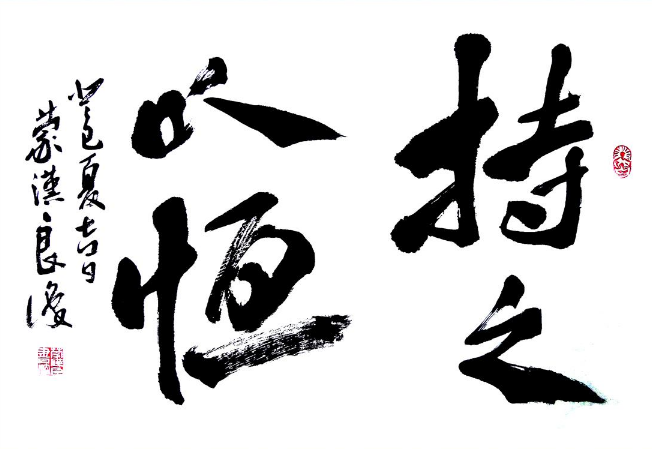 持之
以恒
夏吉日
蒙漢良